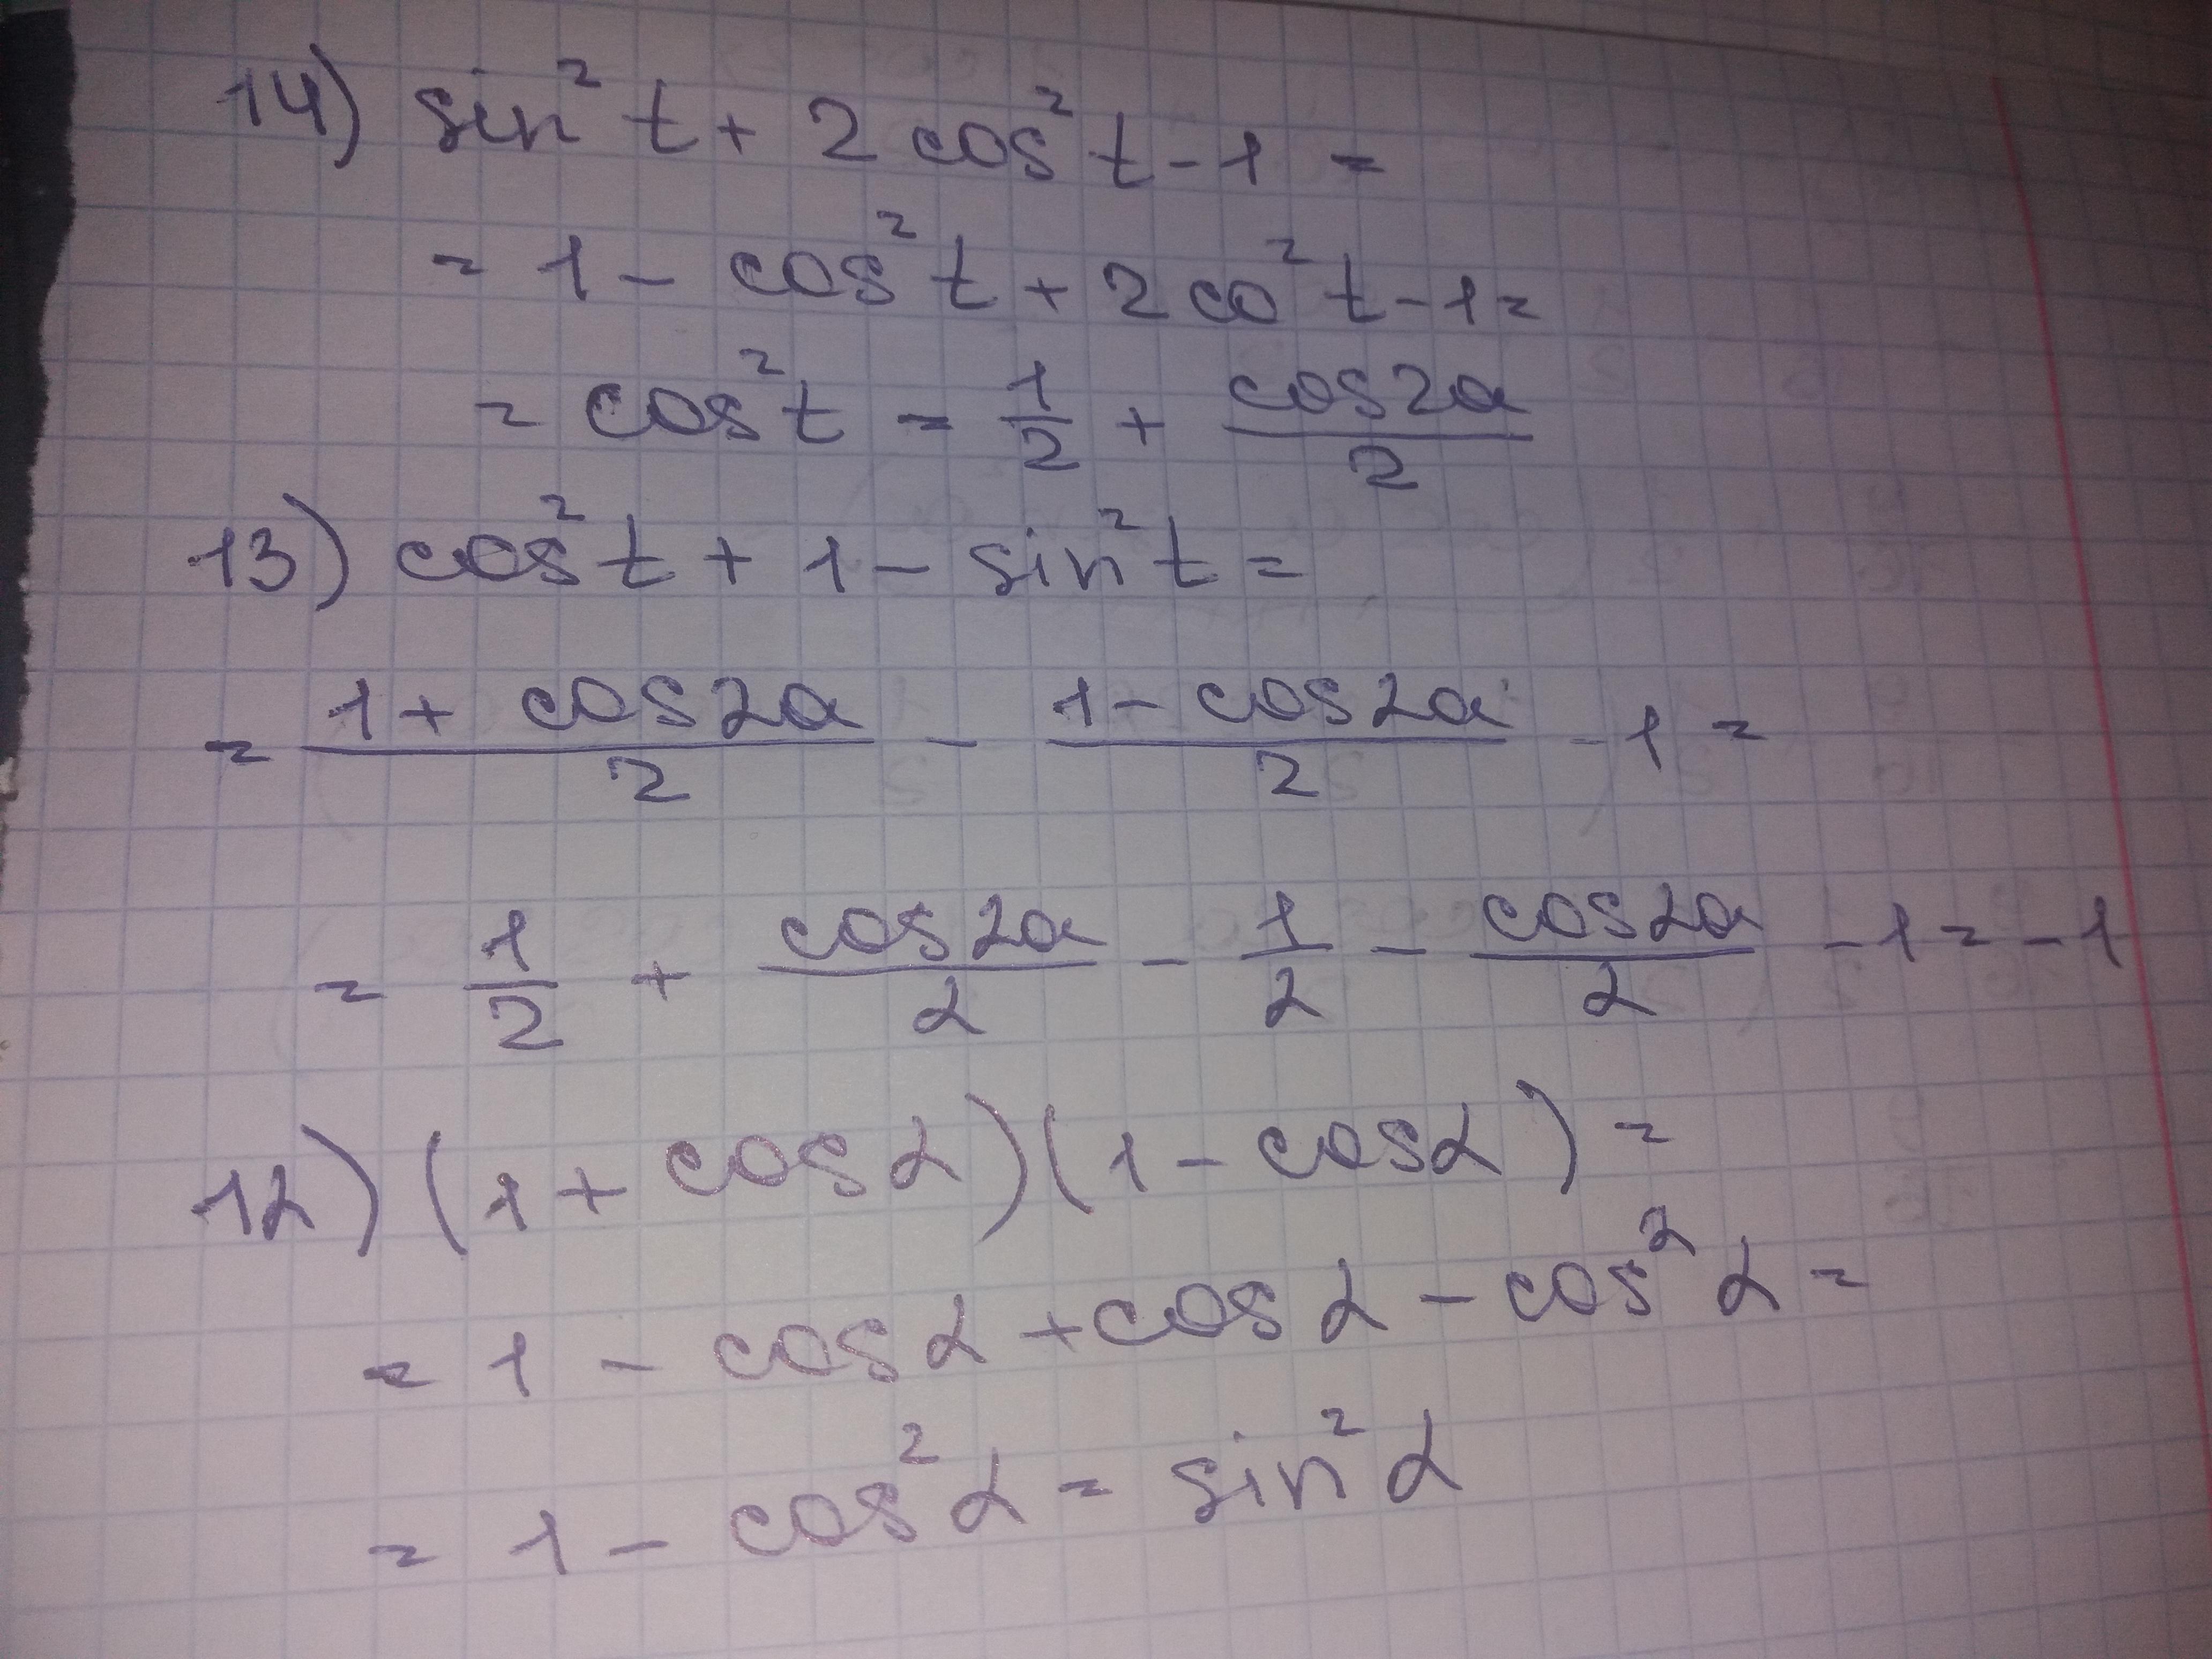 14) sin² t + 2 cos² t - 1 =
= 1 - cos² t + 2 co² t - 1 =
= cos² t = 1/2 + cos2a/2
13) cos² t + 1 - sin² t =
= (1 + cos2a)/2 - (1 - cos2a)/2 - 1 =
= 1/2 + cos2a/2 - 1/2 - cos2a/2 - 1 = -1
12) (1 + cos α)(1 - cos α) =
= 1 - cos α + cos α - cos² α =
= 1 - cos² α = sin² α